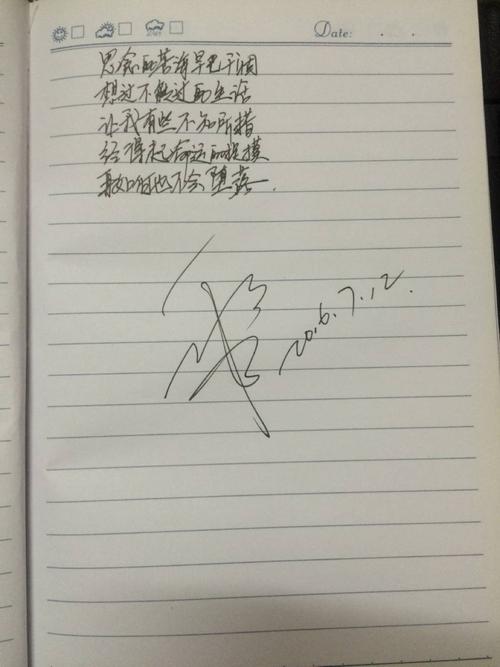 Date: . .
思念的苦海早已干涸
想过不能过的生活
让我有些不知所措
经得起命运的捉摸
再如何也不会堕落
2016.7.12.